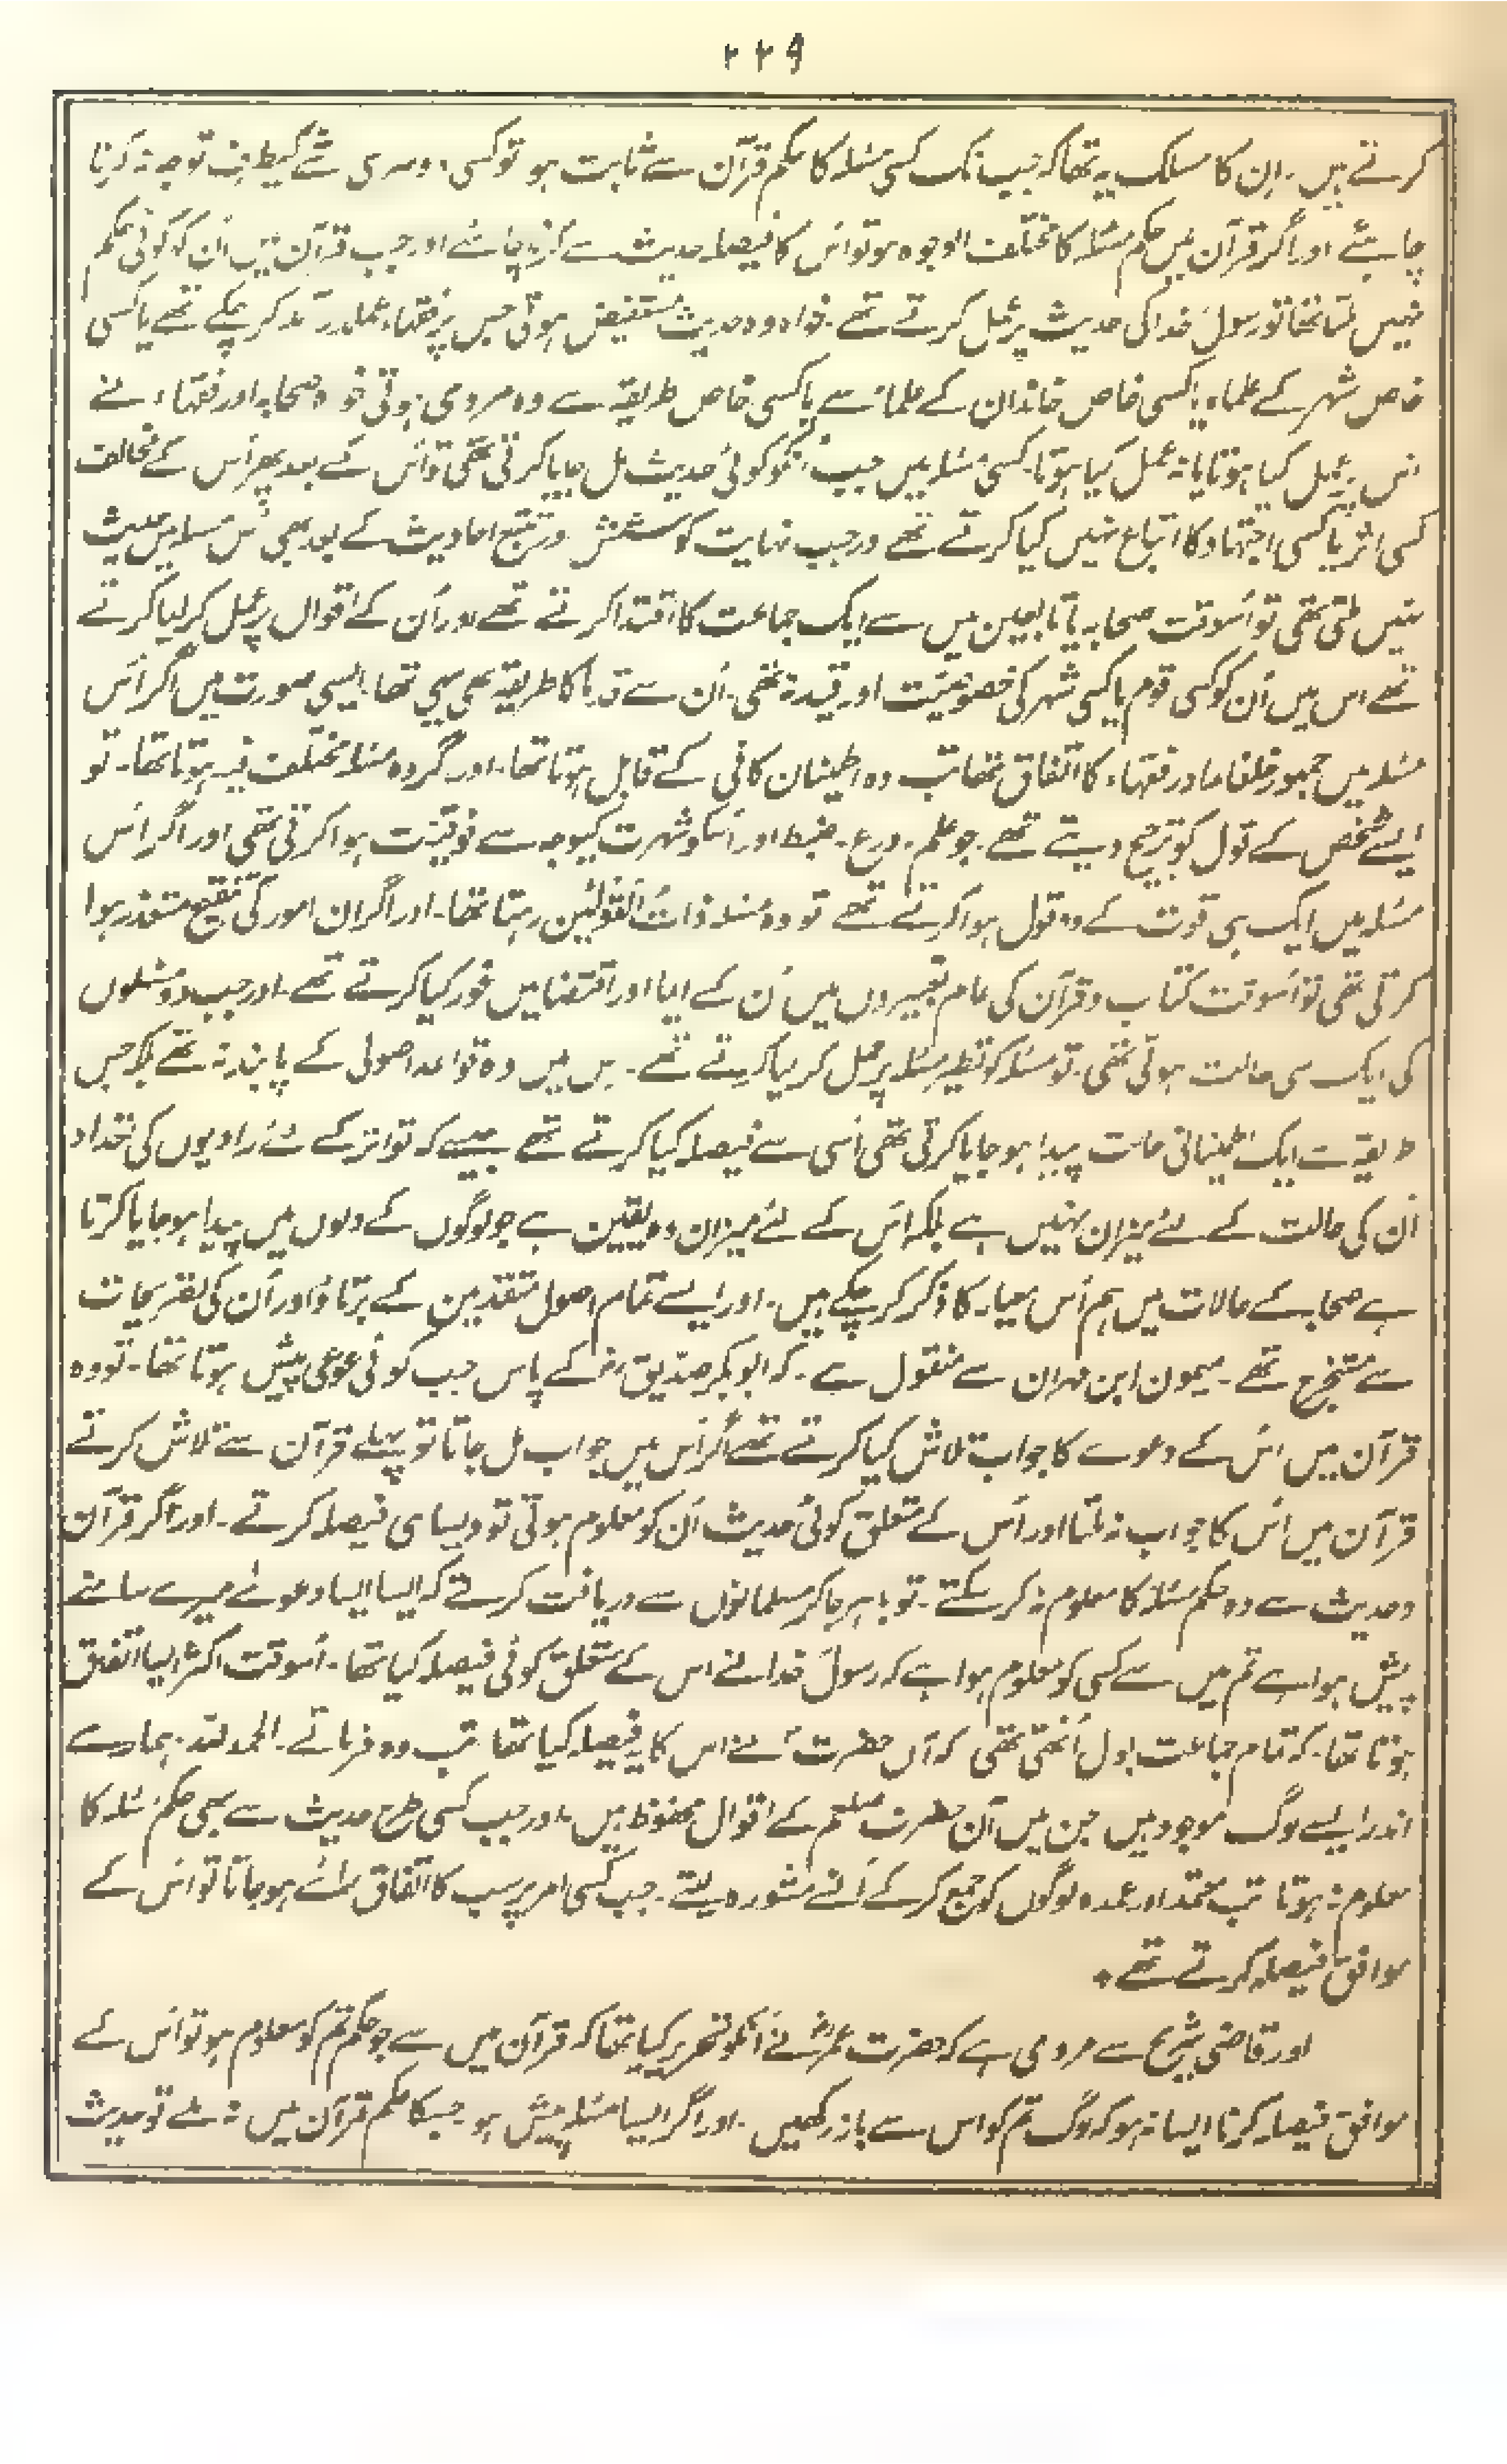 ۲۲۹
کرتے ہیں۔ ان کا مسلک یہ تھا کہ جب تک کسی مسئلہ کا حکم قرآن سے ثابت ہو تو کسی دوسری شے کیطرف توجہ نہ کرنا
چاہئے اور اگر قرآن میں حکم مسئلہ کا مختلف الوجوہ ہو تو اُس کا فیصلہ حدیث سے کرنا چاہئے اور جب قرآن میں اُن کو کوئی حکم
نہیں ملتا تھا تو رسول خدا کی حدیث پر عمل کرتے تھے۔ خواہ وہ حدیث مستفیض ہوتی جس پر فقہاء عملدرآمد کر چکے تھے یا کسی
خاص شہر کے علماء یا کسی خاص خاندان کے علماء سے یا کسی خاص طریقہ سے وہ مروی ہوتی خواہ صحابہ اور فقہاء نے
اس پر عمل کیا ہوتا یا نہ عمل کیا ہوتا۔ کسی مسئلہ میں جب انکو کوئی حدیث مل جایا کرتی تھی تو اُس کے بعد پھر اُس کے مخالف
کسی اثر یا کسی اجتہاد کا اتباع نہیں کیا کرتے تھے اور جب نہایت کوشش و تتبع احادیث کے بعد بھی اُس مسئلہ میں حدیث
نہیں ملتی تھی تو اُسوقت صحابہ یا تابعین میں سے ایک جماعت کا اقتدا کرتے تھے اور اُن کے اقوال پر عمل کر لیا کرتے
تھے اس میں اُن کو کسی قوم یا کسی شہر کی خصوصیت اور قید نہ تھی۔ اُن سے قدما کا طریقہ بھی یہی تھا۔ ایسی صورت میں اگر اُس
مسئلہ میں جمہور خلفاء اور فقہاء کا اتفاق تھا تب وہ اطمینان کافی کے قابل ہوتا تھا۔ اور گر وہ مسئلہ مختلف فیہ ہوتا تھا۔ تو
ایسے شخص کے قول کو ترجیح دیتے تھے۔ جو علم۔ ورع۔ ضبط اور اسکو شہرت کیوجہ سے فوقیت ہوا کرتی تھی اور اگر اُس
مسئلہ میں ایک ہی قوت کے دو قول ہوا کرتے تھے تو وہ مسئلہ ذات القولین رہتا تھا۔ اور اگر ان امور کی تنقیح متعذر ہوا
کرتی تھی تو اُسوقت کتاب و قرآن کی عام تعبیروں میں اُن کے ایما اور اقتضا میں غور کیا کرتے تھے۔ اور جب دو مسئلوں
کی ایک سی حالت ہوتی تھی۔ تو مسئلہ کو نظیر مسئلہ پر حمل کر لیا کرتے تھے۔ اس میں وہ قواعد اصول کے پابند نہ تھے بلکہ جس
طریقہ سے ایک اطمینانی حالت پیدا ہو جایا کرتی تھی اُسی سے فیصلہ کیا کرتے تھے جیسے کہ تواتر کے لئے راویوں کی تعداد
اُن کی حالت کے لئے میزان نہیں ہے بلکہ اُس کے لئے میزان وہ یقین ہے جو لوگوں کے دلوں میں پیدا ہو جایا کرتا
ہے صحابہ کے حالات میں ہم اُس معیار کا ذکر کر چکے ہیں۔ اور ایسے تمام اصول متقدمین کے برتاؤ اور اُن کی تصریحات
سے مستخرج تھے۔ میمون ابن مہران سے منقول ہے۔ کہ ابوبکر صدیق رضہ کے پاس جب کوئی دعویٰ پیش ہوتا تھا۔ تو وہ
قرآن میں اس کے دعوے کا جواب تلاش کیا کرتے تھے اگر اُس میں جواب مل جاتا تو پہلے قرآن سے تلاش کرتے
قرآن میں اُس کا جواب نہ ملتا اور اُس کے متعلق کوئی حدیث اُن کو معلوم ہوتی تو ویسا ہی فیصلہ کرتے۔ اور اگر قرآن
و حدیث سے وہ حکم مسئلہ کا معلوم نہ کر سکتے۔ تو باہر جا کر مسلمانوں سے دریافت کرتے کہ ایسا ایسا دعوٰے میرے سامنے
پیش ہوا ہے تم میں سے کسی کو معلوم ہوا ہے کہ رسول خدا نے اس کے متعلق کوئی فیصلہ کیا تھا۔ اُسوقت اکثر ایسا اتفاق
ہوتا تھا۔ کہ تمام جماعت بول اُٹھتی تھی کہ آں حضرت نے اس کا یہ فیصلہ کیا تھا تب وہ فرماتے۔ الحمد للہ۔ ہمارے
اندر ایسے لوگ موجود ہیں جن میں آن حضرت صلعم کے اقوال محفوظ ہیں۔ اور جب کسی طرح حدیث سے بھی حکم مسئلہ کا
معلوم نہ ہوتا تب معتمد اور عمدہ لوگوں کو جمع کر کے اُنسے مشورہ لیتے۔ جب کسی امر پر سب کا اتفاق رائے ہو جاتا تو اُس کے
موافق فیصلہ کرتے تھے۔
اور قاضی شریح سے مروی ہے کہ حضرت عمرؓ نے اُنکو تحریر کیا تھا کہ قرآن میں سے جو حکم تم کو معلوم ہو تو اُس کے
موافق فیصلہ کرنا ایسا نہ ہو کہ لوگ تم کو اس سے باز رکھیں۔ اور اگر ایسا مسئلہ پیش ہو۔ جسکا حکم قرآن میں نہ ملے تو حدیث